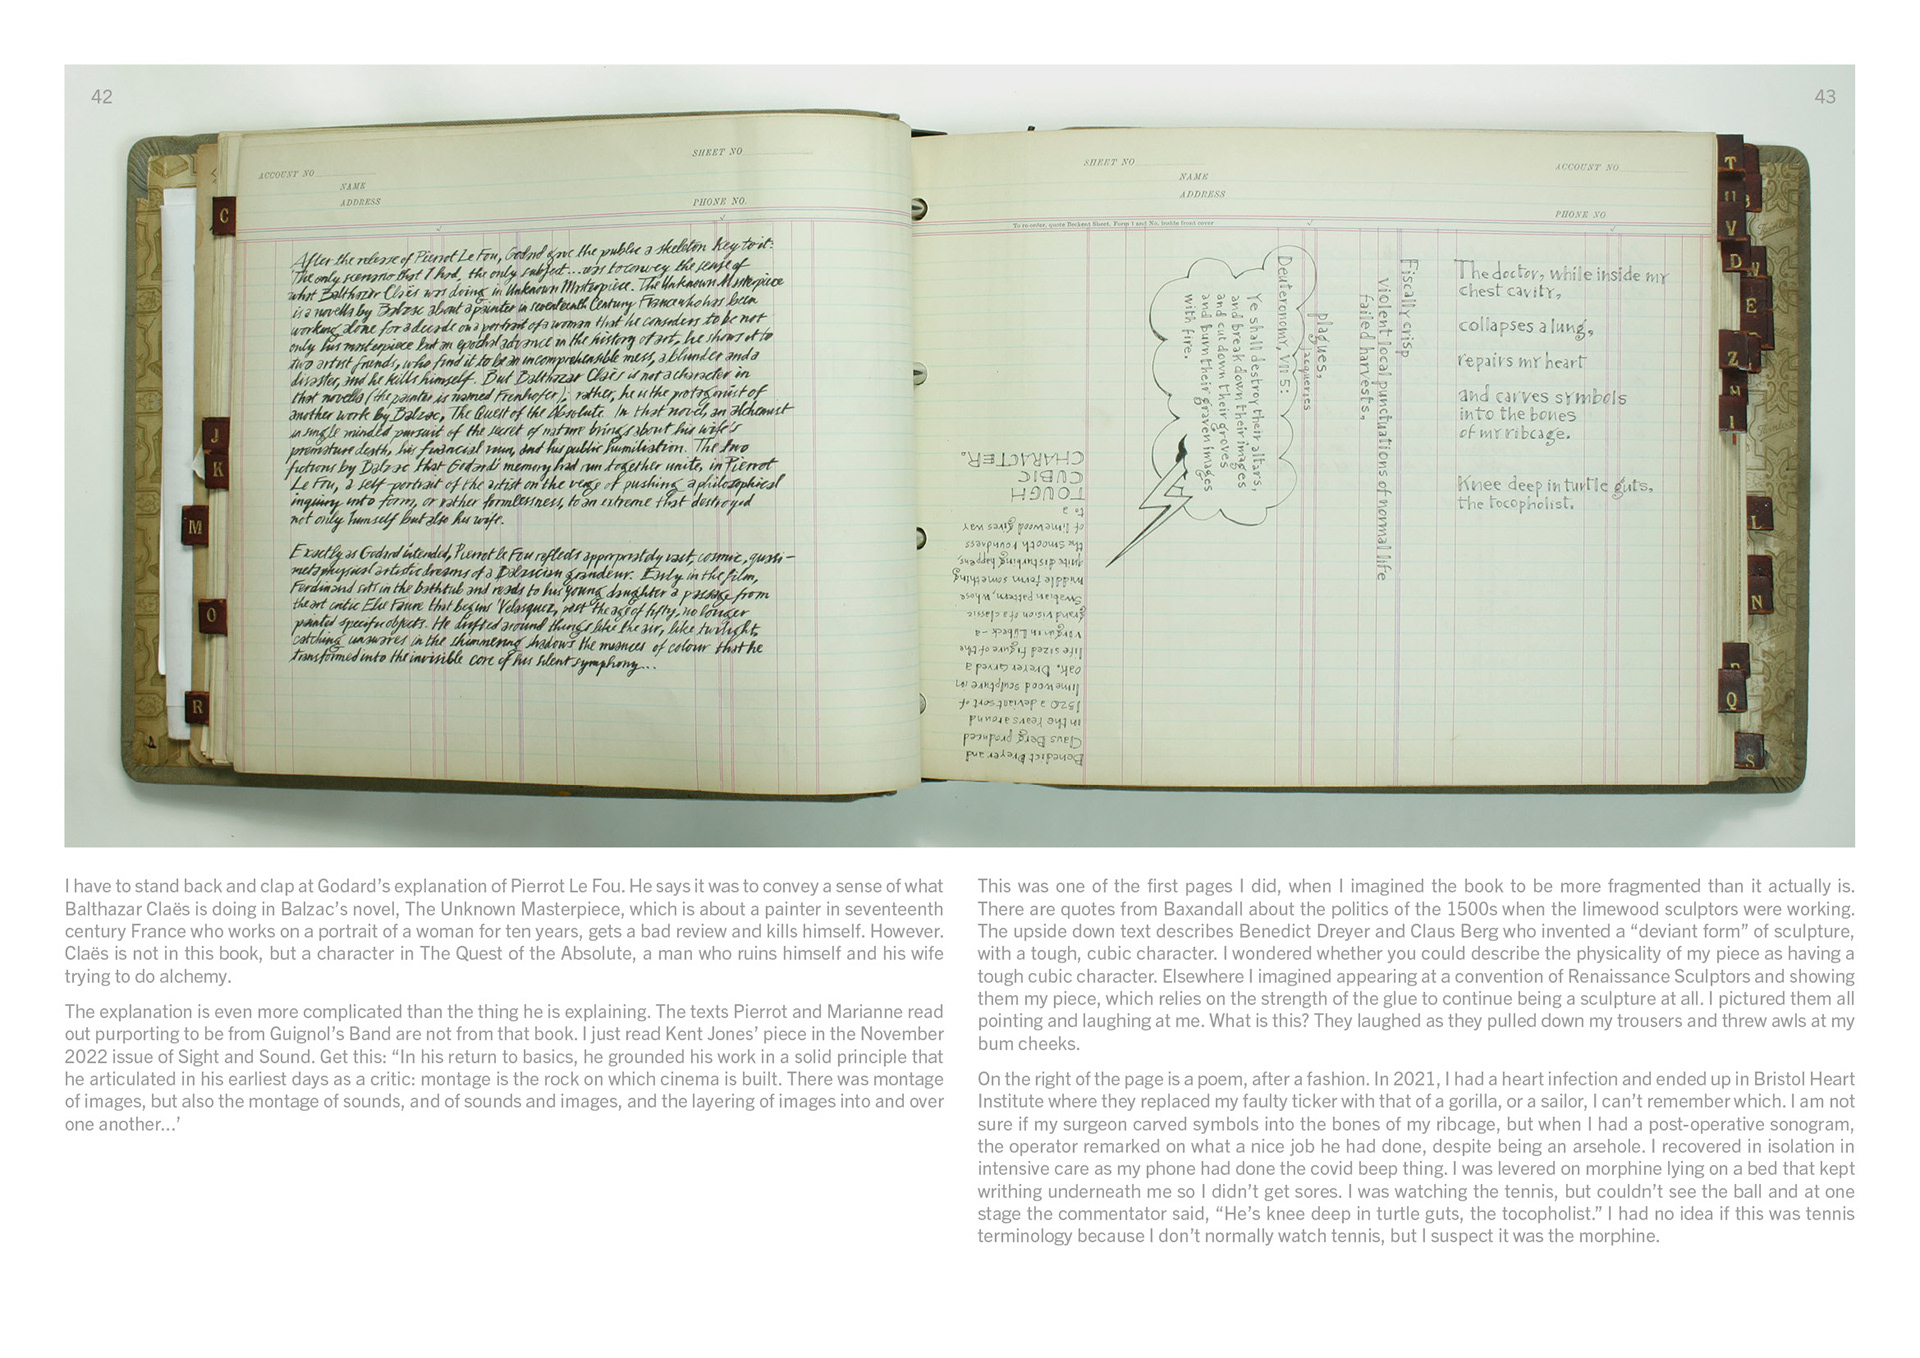 42
43
SHEET NO
ACCOUNT NO
NAME
ADDRESS
PHONE NO.
C
J
K
M
O
R
After the release of Pierrot Le Fou, Godard gave the public a skeleton key to it:
The only scenario that I had, the only subject... was to convey the sense of
what Balthazar Claës was doing in Unknown Masterpiece. The Unknown Masterpiece
is a novella by Balzac about a painter in seventeenth Century France who has been
working alone for a decade on a portrait of a woman that he considers to be not
only his masterpiece but an epochal advance in the history of art, he shows it to
two artist friends, who find it to be an incomprehensible mess, a blunder and a
disaster, and he kills himself. But Balthazar Claës is not a character in
that novella (the painter is named Frenhofer); rather, he is the protagonist of
another work by Balzac, The Quest of the Absolute. In that novel, an alchemist
in single minded pursuit of the secret of nature brings about his wife's
premature death, his financial ruin, and his public humiliation. The two
fictions by Balzac that Godard's memory had run together unite, in Pierrot
Le Fou, a self portrait of the artist on the verge of pushing a philosophical
inquiry into form, or rather formlessness, to an extreme that destroyed
not only himself but also his wife.
Exactly as Godard intended, Pierrot le Fou reflects appropriately vast, cosmic, quasi-
metaphysical artistic dreams of a Balzacian grandeur. Early in the film,
Ferdinand sits in the bathtub and reads to his young daughter a passage from
the art critic Elie Faure that begins Velasquez, past the age of fifty, no longer
painted specific objects. He drifted around things like the air, like twilight,
catching unawares in the shimmering shadows the nuances of colour that he
transformed into the invisible core of his silent symphony...
SHEET NO
NAME
ADDRESS
ACCOUNT NO
PHONE NO
To re-order, quote Deckent Sheet, Form 1 and No. inside front cover
The doctor, while inside my
chest cavity,
collapses a lung,
repairs my heart
and carves symbols
into the bones
of my ribcage.
Knee deep in turtle guts,
the tocopholist.
Fiscally crisp
violent local punctuations of normal life
failed harvests,
plagues,
jacqueries
Deuteronomy VII 5:
Ye shall destroy their altars,
and break down their images
and cut down their groves
and burn their graven images
with fire.
Benedict Dreyer and
Claus Berg produced
in the years around
1520 a deviant sort of
limewood sculpture in
oak, Dreyer carved a
life sized figure of the
virgin in Lübeck - a
grand vision of a classic
Swabian pattern, whose
middle form something
quite disturbing happens,
the smooth roundness
of limewood gives way
to a
TOUGH
CUBIC
CHARACTER.
T
U
V
D
W
E
Z
I
L
N
Q
S
I have to stand back and clap at Godard's explanation of Pierrot Le Fou. He says it was to convey a sense of what
Balthazar Claës is doing in Balzac's novel, The Unknown Masterpiece, which is about a painter in seventeenth
century France who works on a portrait of a woman for ten years, gets a bad review and kills himself. However.
Claës is not in this book, but a character in The Quest of the Absolute, a man who ruins himself and his wife
trying to do alchemy.
The explanation is even more complicated than the thing he is explaining. The texts Pierrot and Marianne read
out purporting to be from Guignol's Band are not from that book. I just read Kent Jones' piece in the November
2022 issue of Sight and Sound. Get this: “In his return to basics, he grounded his work in a solid principle that
he articulated in his earliest days as a critic: montage is the rock on which cinema is built. There was montage
of images, but also the montage of sounds, and of sounds and images, and the layering of images into and over
one another...'
This was one of the first pages I did, when I imagined the book to be more fragmented than it actually is.
There are quotes from Baxandall about the politics of the 1500s when the limewood sculptors were working.
The upside down text describes Benedict Dreyer and Claus Berg who invented a “deviant form” of sculpture,
with a tough, cubic character. I wondered whether you could describe the physicality of my piece as having a
tough cubic character. Elsewhere I imagined appearing at a convention of Renaissance Sculptors and showing
them my piece, which relies on the strength of the glue to continue being a sculpture at all. I pictured them all
pointing and laughing at me. What is this? They laughed as they pulled down my trousers and threw awls at my
bum cheeks.
On the right of the page is a poem, after a fashion. In 2021, I had a heart infection and ended up in Bristol Heart
Institute where they replaced my faulty ticker with that of a gorilla, or a sailor, I can't remember which. I am not
sure if my surgeon carved symbols into the bones of my ribcage, but when I had a post-operative sonogram,
the operator remarked on what a nice job he had done, despite being an arsehole. I recovered in isolation in
intensive care as my phone had done the covid beep thing. I was levered on morphine lying on a bed that kept
writhing underneath me so I didn't get sores. I was watching the tennis, but couldn't see the ball and at one
stage the commentator said, “He's knee deep in turtle guts, the tocopholist.” I had no idea if this was tennis
terminology because I don't normally watch tennis, but I suspect it was the morphine.